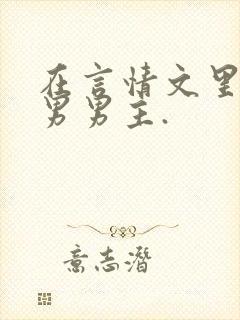 在言情文里
男男主.
意志潛